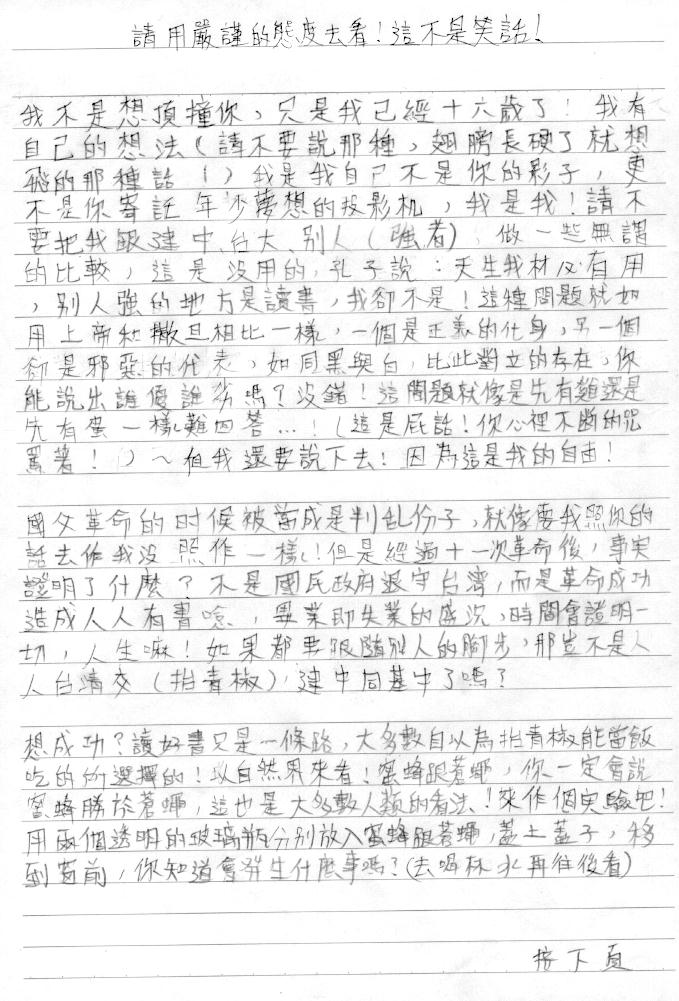 請用嚴謹的態度去看!這不是笑話!
我不是想頂撞你,只是我已經十六歲了!我有
自己的想法(請不要說那種,翅膀長硬了就想
飛的那種話!)我是我自己不是你的影子,更
不是你寄託年少夢想的投影机,我是我!請不
要把我跟建中、台大、別人(強者),做一些無謂
的比較,這是沒用的,孔子說:天生我材必有用
,別人強的地方是讀書,我卻不是!這種問題就如
用上帝和撒旦相比一樣,一個是正義的化身,另一個
卻是邪惡的代表,如同黑與白,比此對立的存在,你
能說出誰優誰劣嗎?沒錯!這問題就像是先有雞還是
先有蛋一樣難回答...!(這是屁話!你心裡不斷的咒
罵著!)~但我還要說下去!因為這是我的自由!
國父革命的时候被當成是判乱份子,就像要我照你的
話去作我沒照作一樣!但是經過十一次革命後,事実
證明了什麼?不是國民政府退守台灣,而是革命成功
造成人人有書唸,畢業即失業的盛況,時間會證明一
切,人生嘛!如果都要跟隨別人的腳步,那豈不是人
人台清交(抬青椒),建中同基中了嗎?
想成功?讀好書只是一條路,大多數自以為抬青椒能當飯
吃的所選擇的!以自然界來看!蜜蜂跟蒼蠅,你一定會說
蜜蜂勝於蒼蠅,這也是大多數人類的看法!來作個実驗吧!
用兩個透明的玻璃瓶分別放入蜜蜂跟蒼蠅,蓋上蓋子,移
到窗前,你知道會発生什麼事嗎?(去喝杯水再往後看)
接下頁